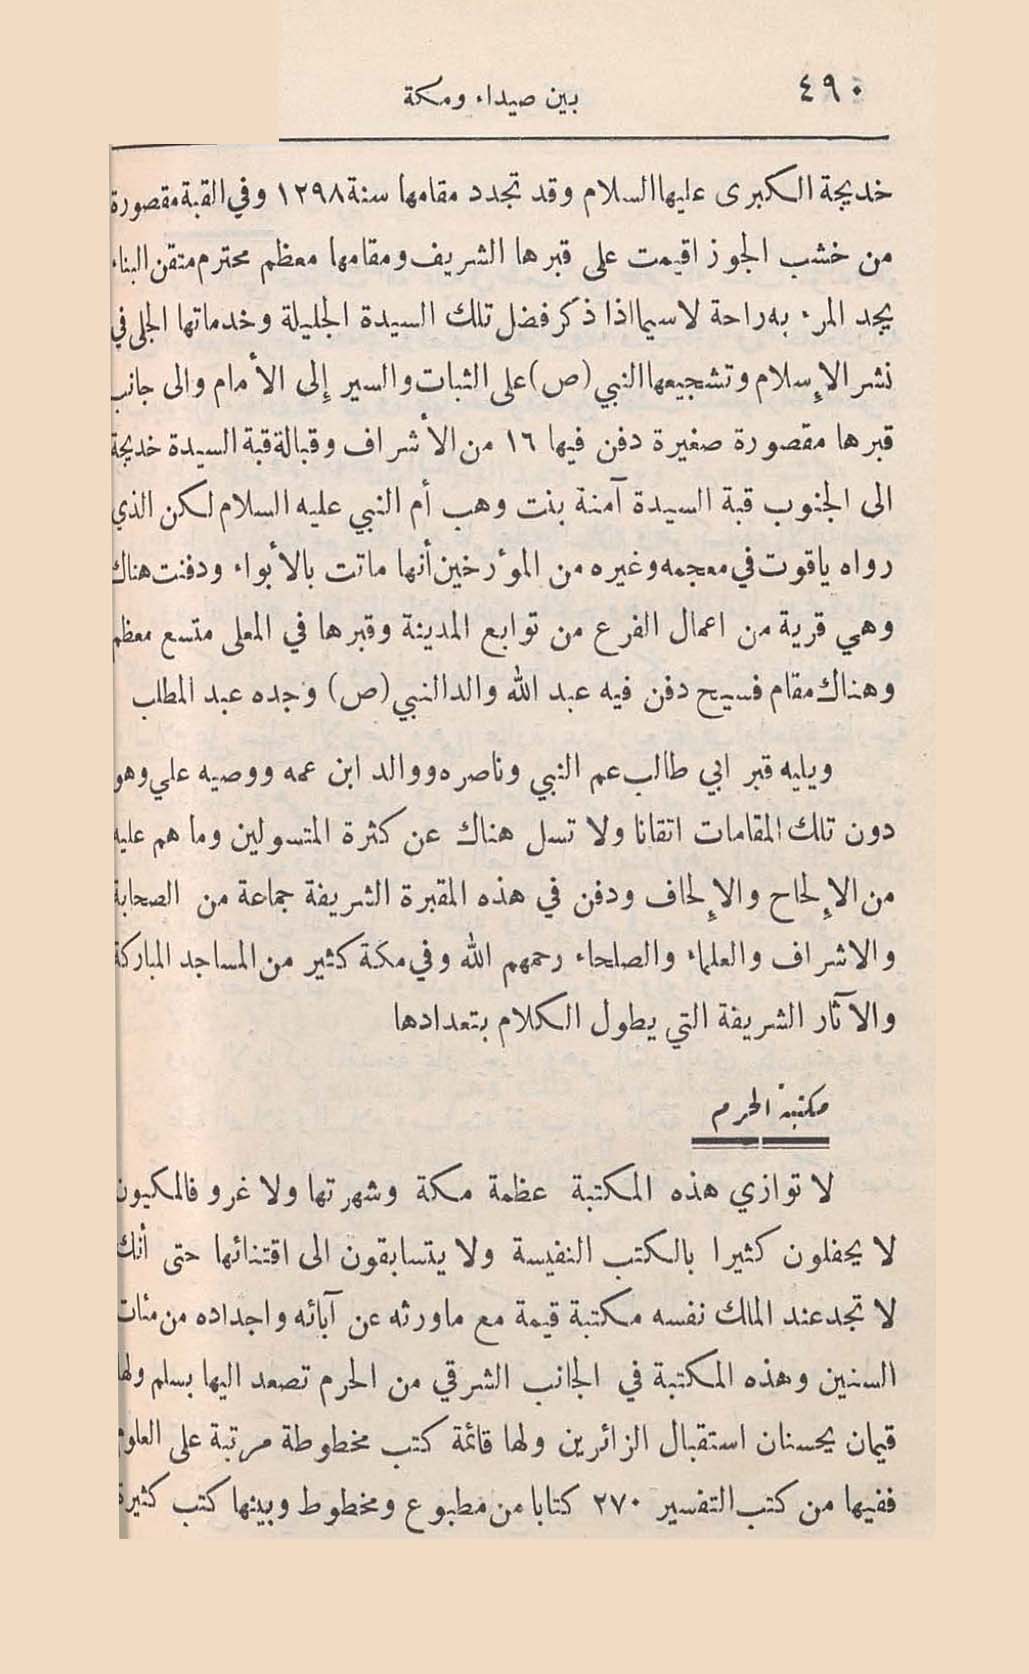 ٤٩٠
بين صيداء ومكة
خديجة الكبرى عليها السلام وقد تجدد مقامها سنة ١٢٩٨ وفي القبة مقصورة
من خشب الجوز اقيمت على قبرها الشريف ومقامها معظم محترم متقن البناء
يجد المرء به راحة لا سيما اذا ذكر فضل تلك السيدة الجليلة وخدماتها الجلى في
نشر الإسلام وتشجيعها النبي (ص) على الثبات والسير إلى الأمام والى جانب
قبرها مقصورة صغيرة دفن فيها ١٦ من الأشراف وقبالة قبة السيدة خديجة
الى الجنوب قبة السيدة آمنة بنت وهب أم النبي عليه السلام لكن الذي
رواه ياقوت في معجمه وغيره من المؤرخين أنها ماتت بالأبواء ودفنت هناك
وهي قرية من اعمال الفرع من توابع المدينة وقبرها في المعلى متسع معظم
وهناك مقام فسيح دفن فيه عبد الله والد النبي (ص) وجده عبد المطلب
ويليه قبر ابي طالب عم النبي وناصره ووالد ابن عمه ووصيه علي وهو
دون تلك المقامات اتقانا ولا تسل هناك عن كثرة المتسولين وما هم عليه
من الإلحاح والإلحاف ودفن في هذه المقبرة الشريفة جماعة من الصحابة
والاشراف والعلماء والصلحاء رحمهم الله وفي مكة كثير من المساجد المباركة
والآثار الشريفة التي يطول الكلام بتعدادها
مكتبة الحرم
لا توازي هذه المكتبة عظمة مكة وشهرتها ولا غرو فالمكيون
لا يحفلون كثيرا بالكتب النفيسة ولا يتسابقون الى اقتنائها حتى أنك
لا تجد عند الملك نفسه مكتبة قيمة مع ما ورثه عن آبائه واجداده من مئات
السنين وهذه المكتبة في الجانب الشرقي من الحرم تصعد اليها بسلم ولها
قيمان يحسنان استقبال الزائرين ولها قائمة كتب مخطوطة مرتبة على العلوم
ففيها من كتب التفسير ٢٧٠ كتابا من مطبوع ومخطوط وبينها كتب كثيرة